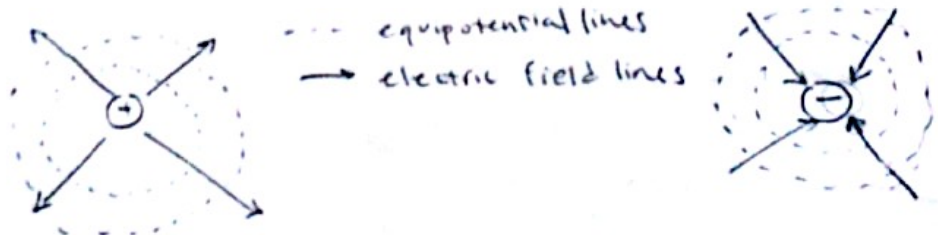 --- equipotential lines
→ electric field lines
+
−